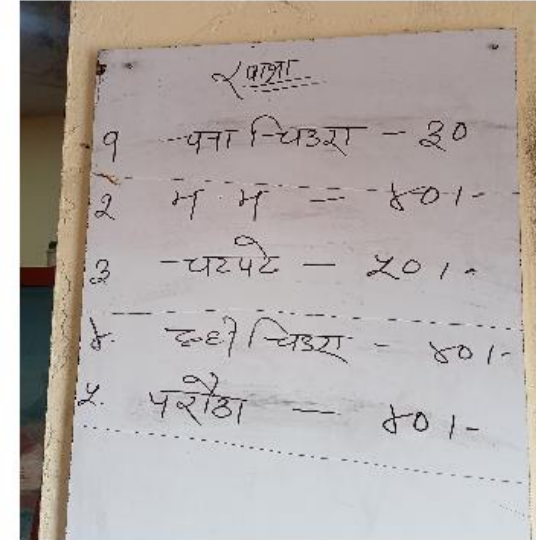 खाजा
१ चना चिउरा - ३०
२ म म - ४०।-
३ चटपटे - ५०।-
४. दही चिउरा - ४०।-
५. परौठा - ४०।-